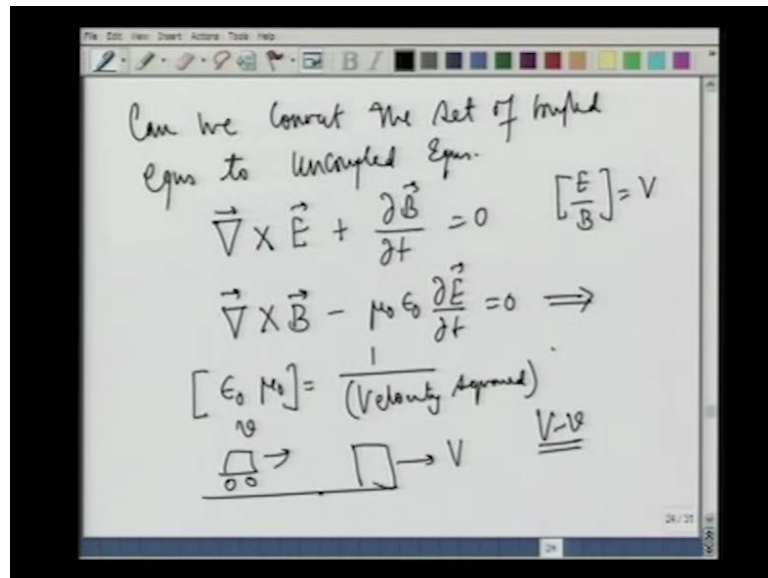 File Edit View Insert Actions Tools Help
B I
Can we convert the set of coupled
eqns to uncoupled Eqns.
∇⃗ × E⃗ + ∂B⃗/∂t = 0 [E/B] = V
∇⃗ × B⃗ − μ₀ ϵ₀ ∂E⃗/∂t = 0 ⟹
[ϵ₀ μ₀] = 1/(Velocity squared)
v → V V−v
24/31
24